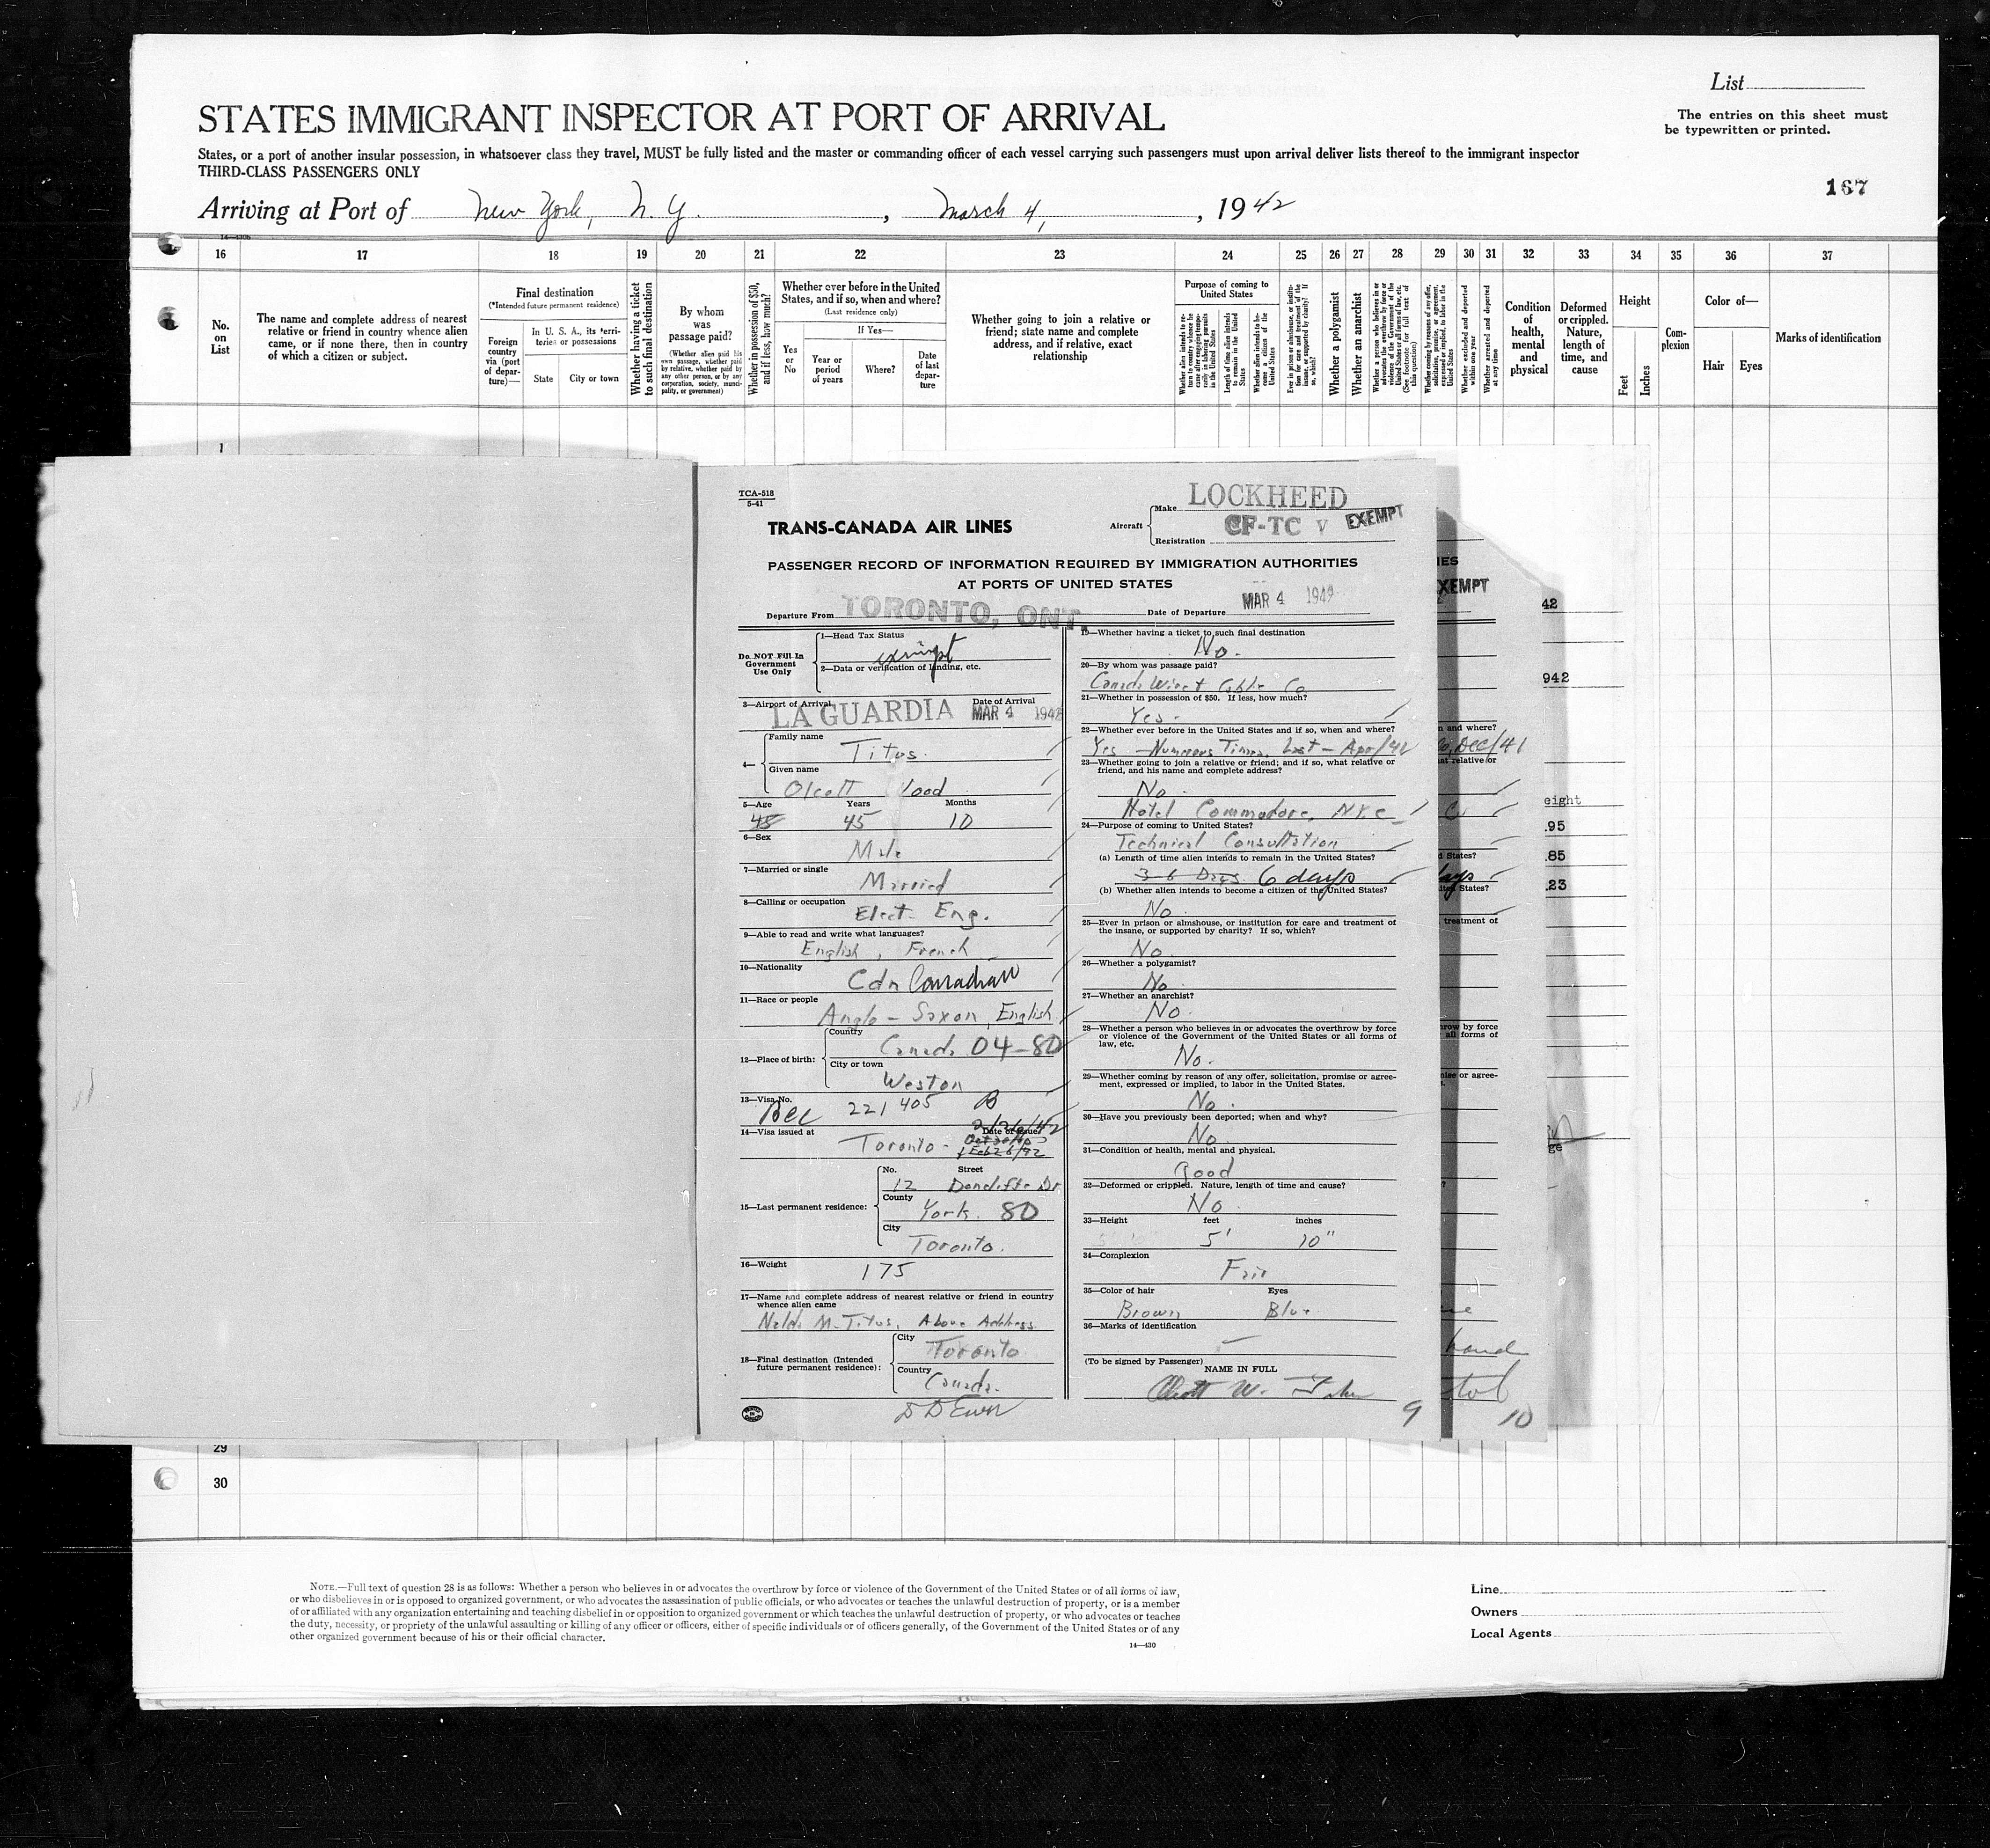 List
STATES IMMIGRANT INSPECTOR AT PORT OF ARRIVAL
The entries on this sheet must
be typewritten or printed.
States, or a port of another insular possession, in whatsoever class they travel, MUST be fully listed and the master or commanding officer of each vessel carrying such passengers must upon arrival deliver lists thereof to the immigrant inspector
THIRD-CLASS PASSENGERS ONLY
167
Arriving at Port of New York, N. Y. , March 4, , 1942
16 17 18 19 20 21 22 23 24 25 26 27 28 29 30 31 32 33 34 35 36 37
No. on List
The name and complete address of nearest
relative or friend in country whence alien
came, or if none there, then in country
of which a citizen or subject.
Final destination
(*Intended future permanent residence)
Foreign country via (port of departure)—
In U. S. A., its territories or possessions
State
City or town
Whether having a ticket to such final destination
By whom was passage paid?
(Whether alien paid his own passage, whether paid by relative, whether paid by any other person, or by any corporation, society, municipality, or government)
Whether in possession of $50, and if less, how much?
Whether ever before in the United
States, and if so, when and where?
(Last residence only)
Yes or No
If Yes—
Year or period of years
Where?
Date of last departure
Whether going to join a relative or
friend; state name and complete
address, and if relative, exact
relationship
Purpose of coming to
United States
Length of time alien intends to remain in the United States
Whether alien intends to become a citizen of the United States
Whether a polygamist
Whether an anarchist
Whether excluded and deported within one year
Whether arrested and deported at any time
Condition of health, mental and physical
Deformed or crippled. Nature, length of time, and cause
Height
Feet
Inches
Complexion
Color of—
Hair
Eyes
Marks of identification
1
TCA-518
5-41
TRANS-CANADA AIR LINES
Aircraft
Make LOCKHEED
Registration CF-TC V EXEMPT
PASSENGER RECORD OF INFORMATION REQUIRED BY IMMIGRATION AUTHORITIES
AT PORTS OF UNITED STATES
Departure From TORONTO, ONT. Date of Departure MAR 4 1942
Do NOT Fill In
Government
Use Only
1—Head Tax Status
exempt
2—Data or verification of landing, etc.
3—Airport of Arrival Date of Arrival
LA GUARDIA MAR 4 1942
4—
Family name
Titus.
Given name
Olcott
5—Age Years Months
45 10
6—Sex
Male
7—Married or single
Married
8—Calling or occupation
Elect. Eng.
9—Able to read and write what languages?
English, French
10—Nationality
Cdn Canadian
11—Race or people
Anglo-Saxon, English
12—Place of birth:
Country
Canada 04-80
City or town
Weston
13—Visa No.
221405 B
14—Visa issued at Date of Issue
Toronto - Feb 26/42
15—Last permanent residence:
No. Street
12
County
York. 80
City
Toronto.
16—Weight
175
17—Name and complete address of nearest relative or friend in country
whence alien came
M. Titus, Above Address
18—Final destination (Intended
future permanent residence):
City
Toronto
Country
Canada.
19—Whether having a ticket to such final destination
No.
20—By whom was passage paid?
Canada Wire & Cable Co
21—Whether in possession of $50. If less, how much?
Yes.
22—Whether ever before in the United States and if so, when and where?
Yes - Numerous Times, Last - Apr/41
23—Whether going to join a relative or friend; and if so, what relative or
friend, and his name and complete address?
No
Hotel Commodore, NYC
24—Purpose of coming to United States?
Technical Consultation
(a) Length of time alien intends to remain in the United States?
3-6 Days. 6 days
(b) Whether alien intends to become a citizen of the United States?
No.
25—Ever in prison or almshouse, or institution for care and treatment of
the insane, or supported by charity? If so, which?
No
26—Whether a polygamist?
No
27—Whether an anarchist?
No.
28—Whether a person who believes in or advocates the overthrow by force
or violence of the Government of the United States or all forms of
law, etc.
No.
29—Whether coming by reason of any offer, solicitation, promise or agree-
ment, expressed or implied, to labor in the United States.
No.
30—Have you previously been deported; when and why?
No
31—Condition of health, mental and physical.
Good
32—Deformed or crippled. Nature, length of time and cause?
No.
33—Height feet inches
5' 10"
34—Complexion
Fair
35—Color of hair Eyes
Brown Blue
36—Marks of identification
—
(To be signed by Passenger)
NAME IN FULL
Olcott W. Titus
9
10
IES
EXEMPT
n and where?
Dec/41
treatment of
row by force
all forms of
hand
42
942
eight
.95
.85
.23
29
30
NOTE.—Full text of question 28 is as follows: Whether a person who believes in or advocates the overthrow by force or violence of the Government of the United States or of all forms of law,
or who disbelieves in or is opposed to organized government, or who advocates the assassination of public officials, or who advocates or teaches the unlawful destruction of property, or is a member
of or affiliated with any organization entertaining and teaching disbelief in or opposition to organized government or which teaches the unlawful destruction of property, or who advocates or teaches
the duty, necessity, or propriety of the unlawful assaulting or killing of any officer or officers, either of specific individuals or of officers generally, of the Government of the United States or of any
other organized government because of his or their official character.
14—430
Line
Owners
Local Agents